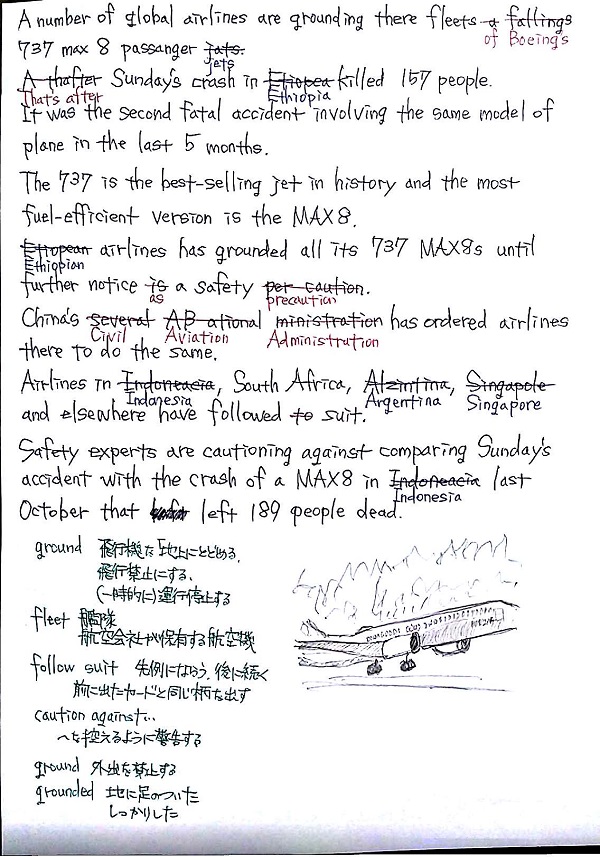 A number of global airlines are grounding there fleets a fallings
of Boeing's
737 max 8 passanger jats.
jets
A thafter Sunday's crash in Etiopea killed 157 people.
That's after Ethiopia
It was the second fatal accident involving the same model of
plane in the last 5 months.
The 737 is the best-selling jet in history and the most
fuel-efficient version is the MAX8.
Etiopean airlines has grounded all its 737 MAX8s until
Ethiopian
further notice is a safety per caution.
as precaution
China's several AB ational ministration has ordered airlines
Civil Aviation Administration
there to do the same.
Airlines in Indoneacia, South Africa, Alzintina, Singapole
Indonesia Argentina Singapore
and elsewhere have followed to suit.
Safety experts are cautioning against comparing Sunday's
accident with the crash of a MAX8 in Indoneacia last
Indonesia
October that left 189 people dead.
ground 飛行機を地上にとどめる,
飛行禁止にする,
(一時的に)運行停止する
fleet 艦隊
航空会社が保有する航空機
follow suit 先例にならう, 後に続く
前に出たカードと同じ柄を出す
caution against...
〜を控えるように警告する
ground 外出を禁止する
grounded 地に足のついた
しっかりした